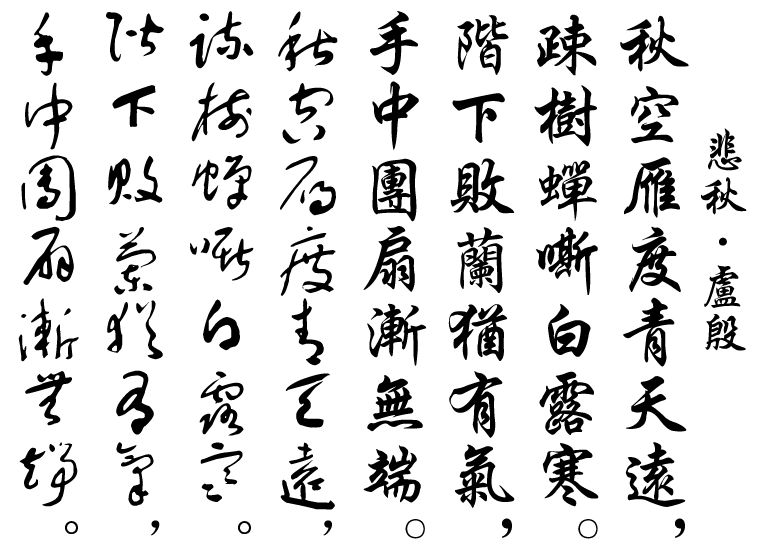 悲秋·盧殷
秋空雁度青天遠，
疎樹蟬嘶白露寒。
階下敗蘭猶有氣，
手中團扇漸無端。
秋空雁度青天遠，
疎樹蟬嘶白露寒。
階下敗蘭猶有氣，
手中團扇漸無端。